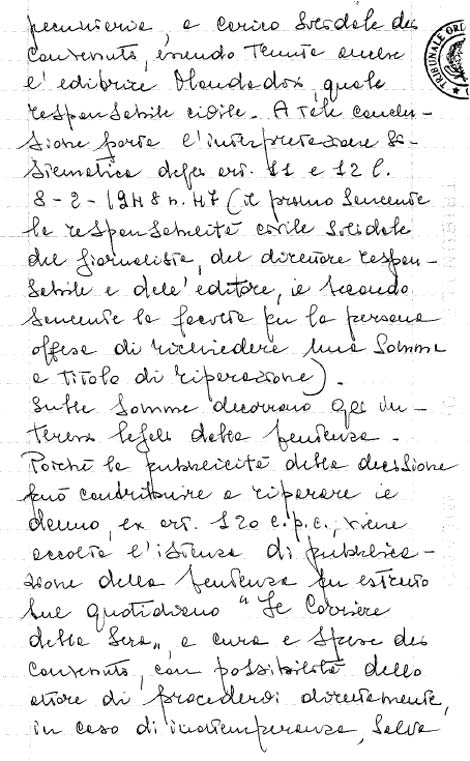 pecuniaria, a carico solidale dei
convenuti, essendo tenuta anche
l'editrice Mondadori, quale
responsabile civile. A tale conclu-
sione porta l'interpretazione si-
stematica degli art. 11 e 12 l.
8-2-1948 n. 47 (il primo sancente
la responsabilità civile solidale
del giornalista, del direttore respon-
sabile e dell'editore, il secondo
sancente la facoltà per la persona
offesa di richiedere una somma
a titolo di riparazione).
Sulle somme decorrono gli in-
teressi legali dalla sentenza.
Poiché la pubblicità della decisione
può contribuire a riparare il
danno, ex art. 120 c.p.c., viene
accolta l'istanza di pubblica-
zione della sentenza per estratto
sul quotidiano "Il Corriere
della Sera", a cura e spese dei
convenuti, con possibilità dello
attore di procedervi direttamente,
in caso di inottemperanza, salva
TRIBUNALE ORD